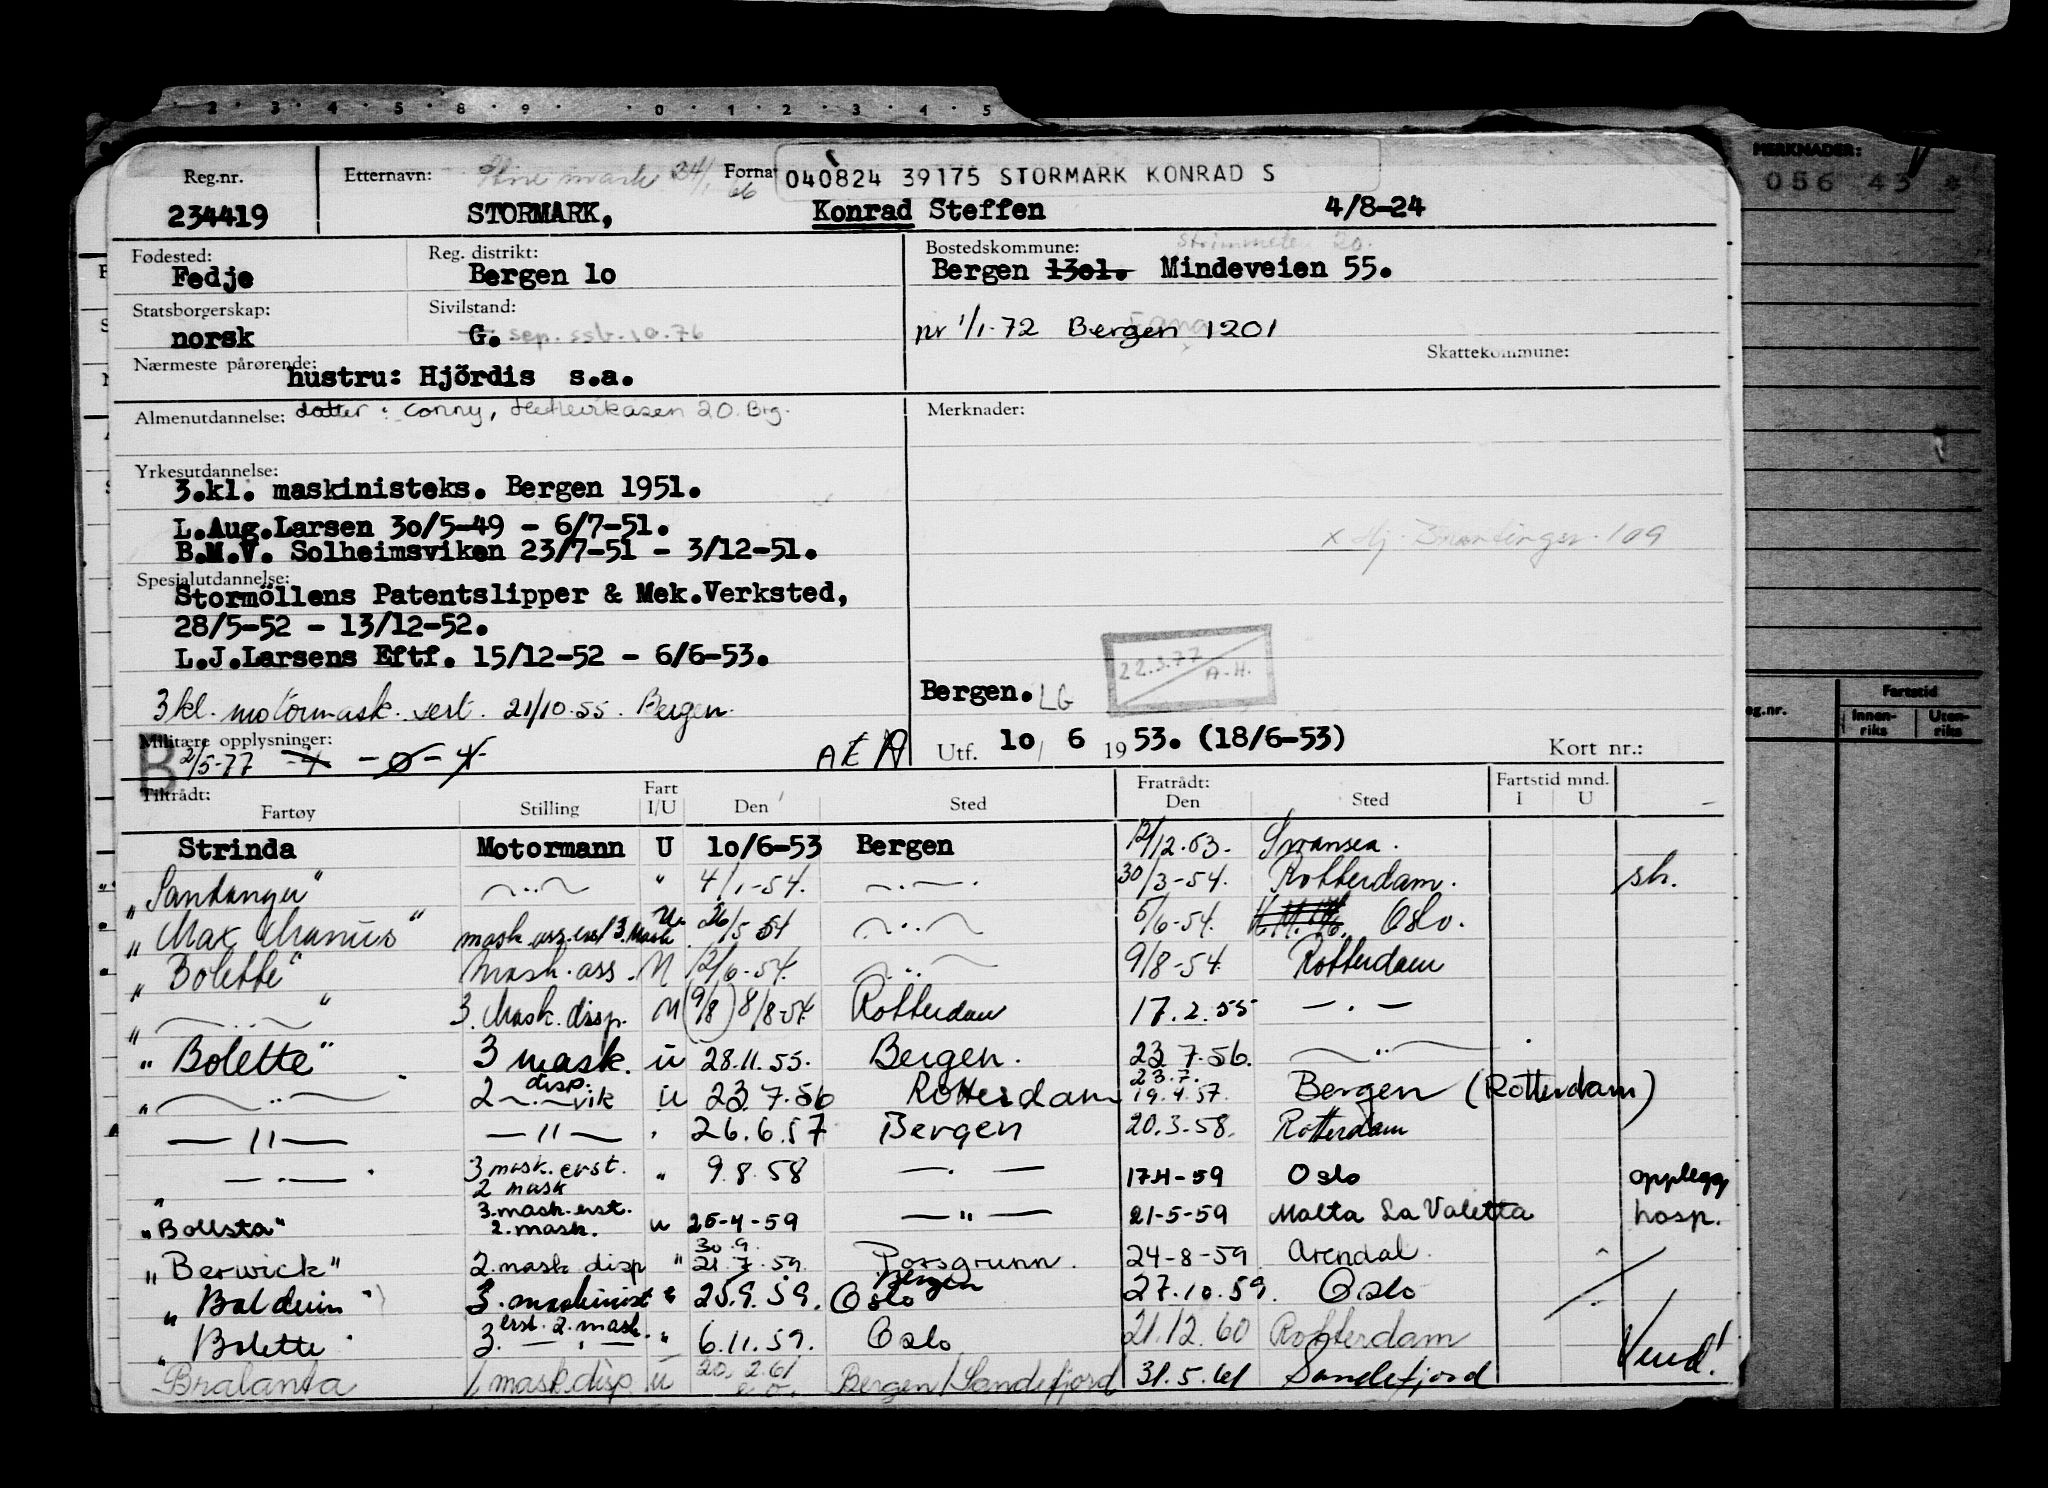 2 3 4 5 8 9 0 1 2 3 4 5
MERKNADER:
056 43 *
Reg.nr. Etternavn: 24/1 66 Fornavn 040824 39175 STORMARK KONRAD S
234419 STORMARK, Konrad Steffen 4/8-24
Fødested: Reg. distrikt: Bostedskommune: 20.
Fedje Bergen lo Bergen 13ol. Mindeveien 55.
Statsborgerskap: Sivilstand:
norsk G. sep. ssb. 10.76 pr 1/1-72 Bergen Fana 1201
Nærmeste pårørende: Skattekommune:
hustru: Hjördis s.a.
Almenutdannelse: datter: Conny, 20. Brg. Merknader:
Yrkesutdannelse:
3.kl. maskinisteks. Bergen 1951.
L.Aug.Larsen 3o/5-49 - 6/7-51. x Hj. 109
B.M.V. Solheimsviken 23/7-51 - 3/12-51.
Spesialutdannelse:
Stormöllens Patentslipper & Mek.Verksted,
28/5-52 - 13/12-52.
L.J.Larsens Eftf. 15/12-52 - 6/6-53. 22.3.77 A.H.
3 kl. motormask. sert. 21/10.55. Bergen. Bergen. LG
Militære opplysninger:
B 2/5-77 -4- -0- 4- AEA Utf. lo/ 6 19 53. (18/6-53) Kort nr.:
Reg.nr. Fartstid
Innenriks Utenriks
Tiltrådt: Fart Fratrådt: Fartstid mnd.
Fartøy Stilling I/U Den Sted Den Sted I U
Strinda Motormann U lo/6-53 Bergen 12/12.53. Swansea.
"Sandanger" —..— " 4/1-54. —..—. 30/3-54. Rotterdam. sh.
"Max Manus" mask.ass.erst 3.mask U. 26/5 54 —..— 5/6-54. Oslo.
"Bolette" Mask.ass. U 12/6-54. —..— 9/8-54. Rotterdam
" —..— " 3. Mask.disp. U (9/8) 8/8-54 Rotterdam 17.2.55 —.—
"Bolette" 3 mask. u 28.11.55. Bergen. 23.7.56. —..—.
" —..— 2 disp. —..— vik u 23.7.56 Rotterdam 23.7. 19.4.57. Bergen (Rotterdam)
—"— —"— " 26.6.57 Bergen 20.3.58. Rotterdam
" —.— 3 mask.erst. 2 mask " 9.8.58 —.— 17.4-59 Oslo opplegg
"Bollsta" 3.mask.erst. 2.mask. u 25-4-59 —"— 21-5-59 Malta La Valetta hosp.
"Berwick" 2.mask disp " 30.9. 21.7.59. Porsgrunn. 24-8-59 Arendal.
"Balduin" 3.maskinist " 25.9.59. Oslo Bergen 27.10.59. Oslo
"Bolette" 3. erst. 2.mask. " 6.11.59. Oslo 21.12.60 Rotterdam Vend!
Bralanta 1 mask.disp u 20.2.61 Bergen/Sandefjord 31.5.61 Sandefjord